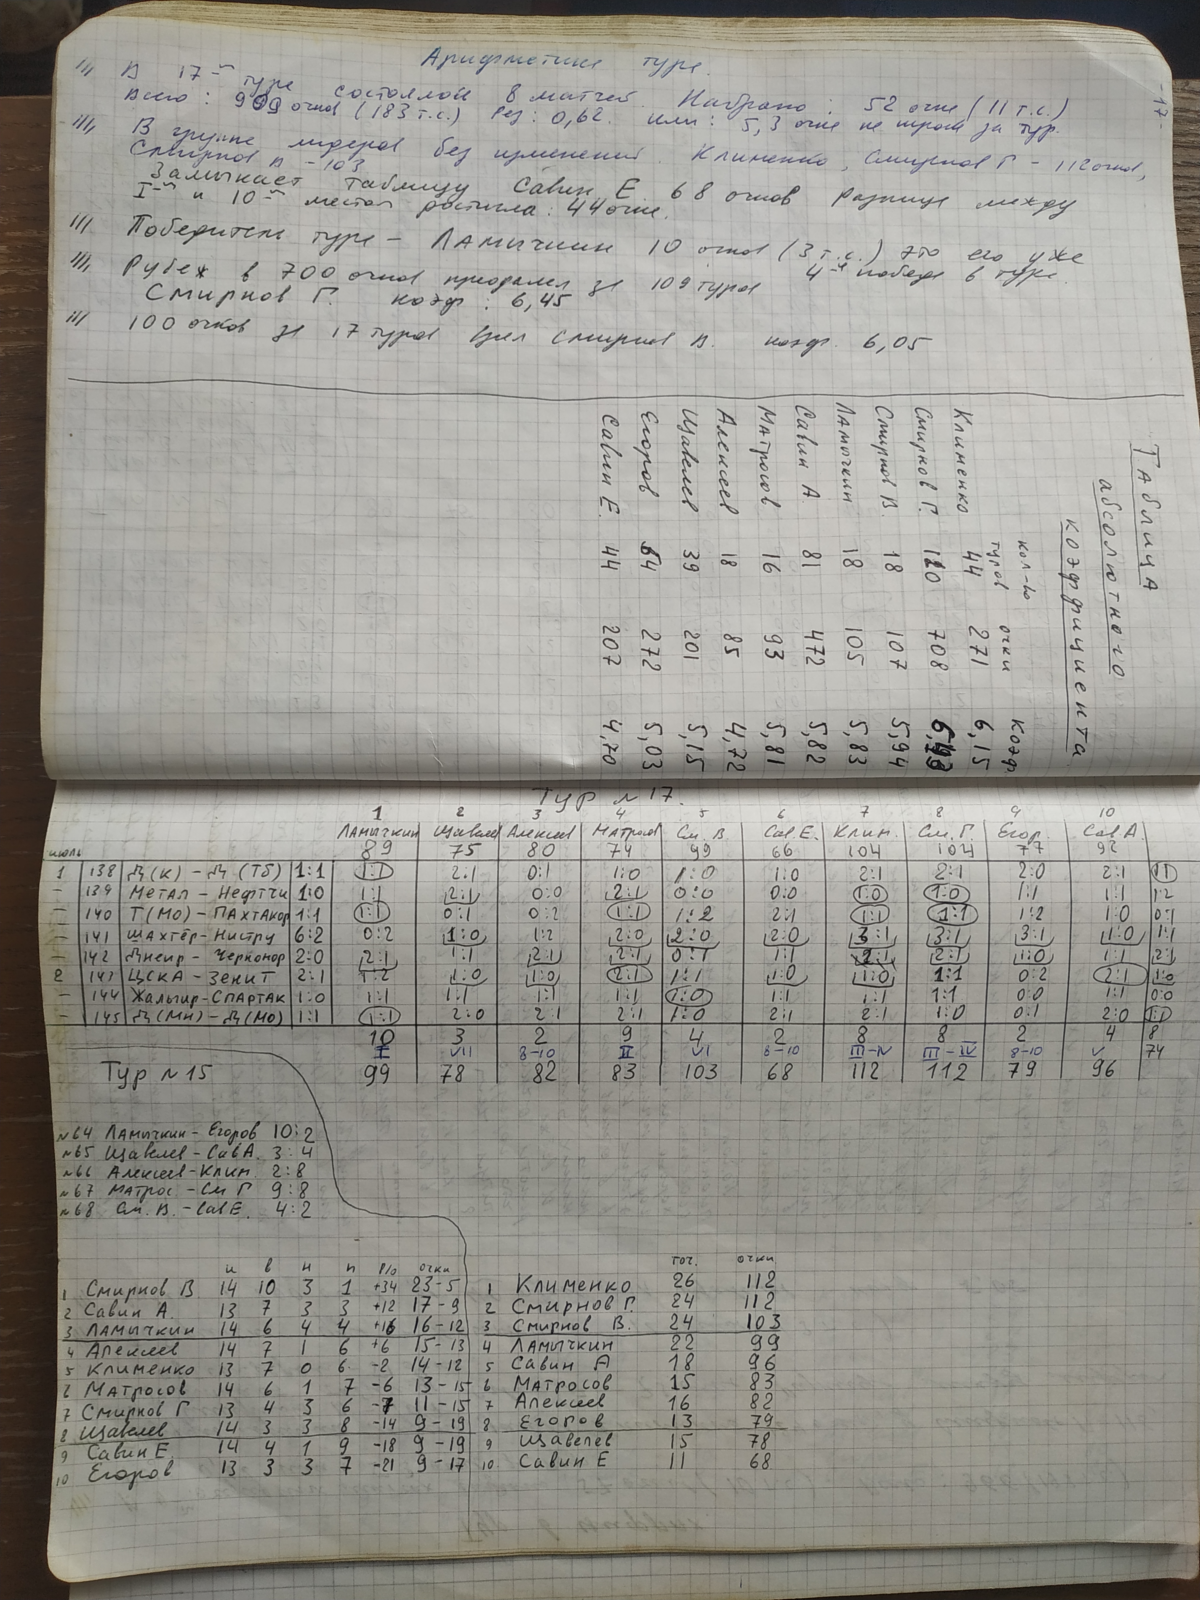 Арифметика тура.
-17-
В 17-м туре состоялось 8 матчей. Набрано: 52 очка (11 т.с.)
Всего: 909 очков (183 т.с.) Рез: 0,62. или: 5,3 очка за тур.
В группе лидеров без изменений. Клименко, Смирнов Г - 112 очков,
Смирнов В - 103
Замыкает таблицу Савин Е 68 очков разница между
I-м и 10-м местом достигла: 44 очка.
Победитель тура - Ламычкин 10 очков (3 т.с.) это его уже
4-я победа в туре.
Рубеж в 700 очков преодолел за 109 туров
Смирнов Г. коэф: 6,45
100 очков за 17 туров взял Смирнов В. коэф. 6,05
Таблица
абсолютного
коэффициента
кол-во туров очки коэф
Клименко 44 271 6,15
Смирнов Г. 708
Смирнов В. 18 107 5,94
Ламычкин 18 105 5,83
Савин А 81 472 5,82
Матросов 16 93 5,81
Алексеев 18 85 4,72
Щавелев 39 201 5,15
Егоров 54 272 5,03
Савин Е. 44 207 4,70
Тур №17.
1 2 3 4 5 6 7 8 9 10
Ламычкин Щавелев Алексеев Матросов См. В Сав Е. Клим. См. Г. Егор. Сав А.
июль 89 75 80 74 99 66 104 104 77 92
1 138 Д(К) - Д(Тб) 1:1 1:1 2:1 0:1 1:0 1:0 1:0 2:1 2:1 2:0 2:1 1:1
- 139 Метал - Нефтчи 1:0 1:1 2:1 0:0 2:1 0:0 0:0 1:0 1:0 1:1 1:1 1:2
- 140 Т(Мо) - Пахтакор 1:1 1:1 0:1 0:2 1:1 1:2 2:1 1:1 1:1 1:2 1:0 0:1
- 141 Шахтёр - Нистру 6:2 0:2 1:0 1:2 2:0 2:0 2:0 3:1 3:1 3:1 1:0 1:1
- 142 Днепр - Черномор 2:0 2:1 1:1 2:1 2:1 0:1 1:1 2:1 2:1 1:0 1:1 2:1
2 143 ЦСКА - Зенит 2:1 1:2 1:0 1:0 2:1 1:1 1:0 1:0 1:1 0:2 2:1 1:0
- 144 Жальгир - Спартак 1:0 1:1 1:1 1:1 1:1 1:0 1:1 1:1 1:1 0:0 1:1 0:0
- 145 Д(Мн) - Д(Мо) 1:1 1:1 2:0 2:1 2:1 1:0 2:1 2:1 1:0 0:1 2:0 1:1
10 3 2 9 4 2 8 8 2 4 8
I VII 8-10 II VI 8-10 III-IV III-IV 8-10 V 74
99 78 82 83 103 68 112 112 79 96
Тур №15
№64 Ламычкин - Егоров 10:2
№65 Щавелев - Сав А. 3:4
№66 Алексеев - Клим. 2:8
№67 Матрос. - См Г 9:8
№68 См. В. - Сав Е. 4:2
и в н п р/о очки
1 Смирнов В 14 10 3 1 +34 23-5
2 Савин А. 13 7 3 3 +12 17-9
3 Ламычкин 14 6 4 4 +16 16-12
4 Алексеев 14 7 1 6 +6 15-13
5 Клименко 13 7 0 6 -2 14-12
6 Матросов 14 6 1 7 -6 13-15
7 Смирнов Г 13 4 3 6 -7 11-15
8 Щавелев 14 3 3 8 -14 9-19
9 Савин Е 14 4 1 9 -18 9-19
10 Егоров 13 3 3 7 -21 9-17
точ. очки
1 Клименко 26 112
2 Смирнов Г. 24 112
3 Смирнов В. 24 103
4 Ламычкин 22 99
5 Савин А 18 96
6 Матросов 15 83
7 Алексеев 16 82
8 Егоров 13 79
9 Щавелев 15 78
10 Савин Е 11 68